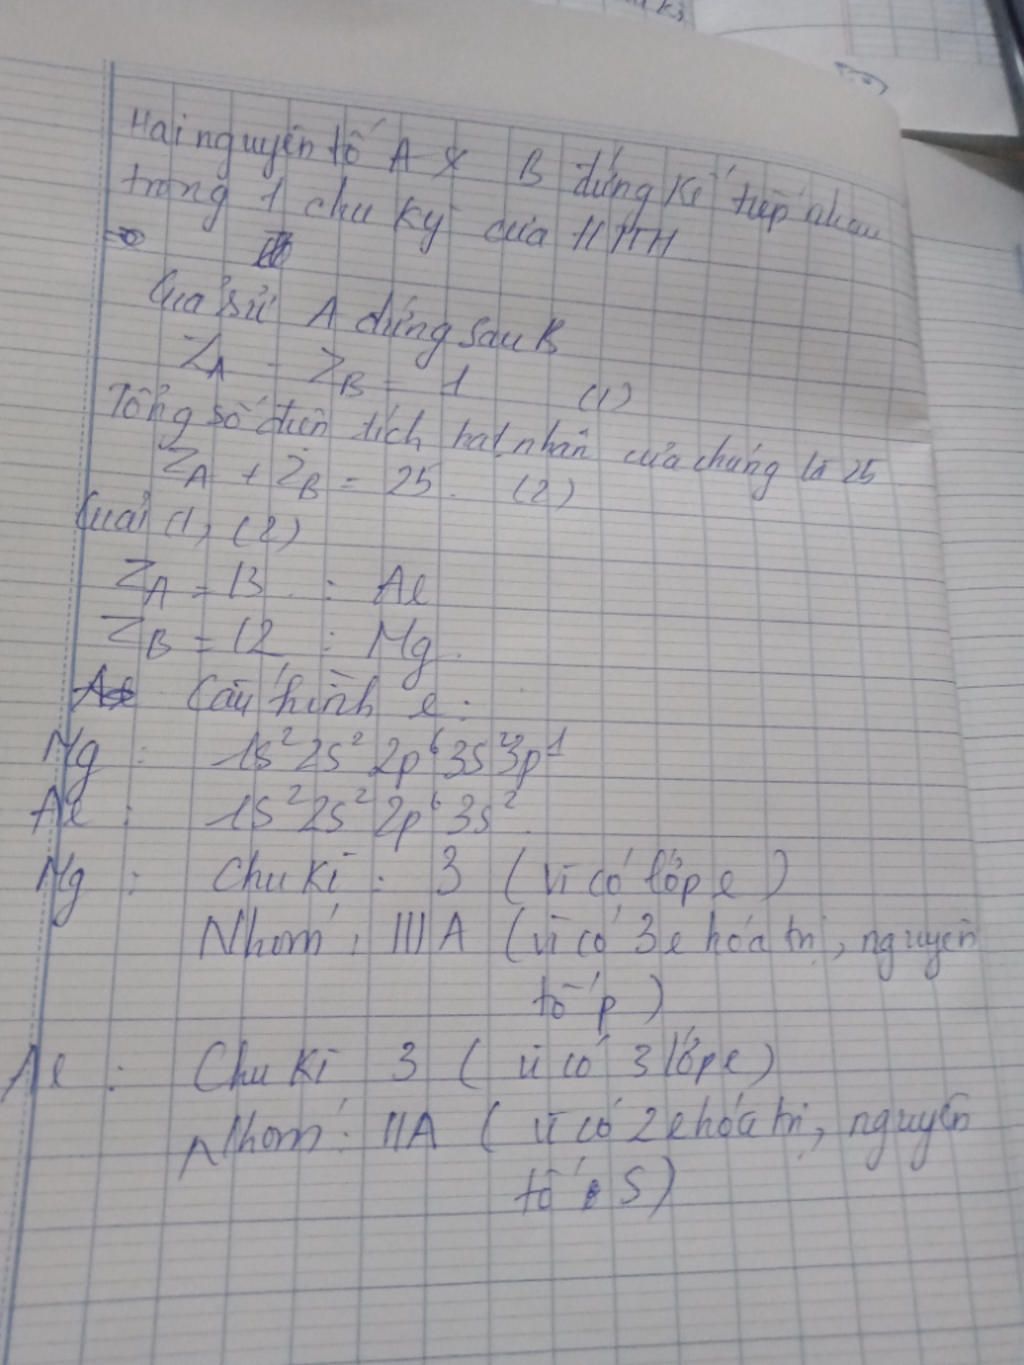 Hai nguyên tố A & B đứng kế tiếp nhau
trong 1 chu kỳ của HTTH
Giả sử A đứng sau B
Z_A - Z_B = 1 (1)
Tổng số điện tích hạt nhân của chúng là 25
Z_A + Z_B = 25. (2)
Giải (1), (2)
Z_A = 13 : Al
Z_B = 12 : Mg.
Cấu hình e:
Mg : 1s² 2s² 2p⁶ 3s² 3p¹
Al : 1s² 2s² 2p⁶ 3s².
Mg : Chu kì : 3 (vì có lớp e)
Nhóm : IIIA (vì có 3e hóa trị, nguyên
tố p)
Al : Chu kì 3 (vì có 3 lớp e)
Nhóm : IIA (vì có 2e hóa trị, nguyên
tố s)